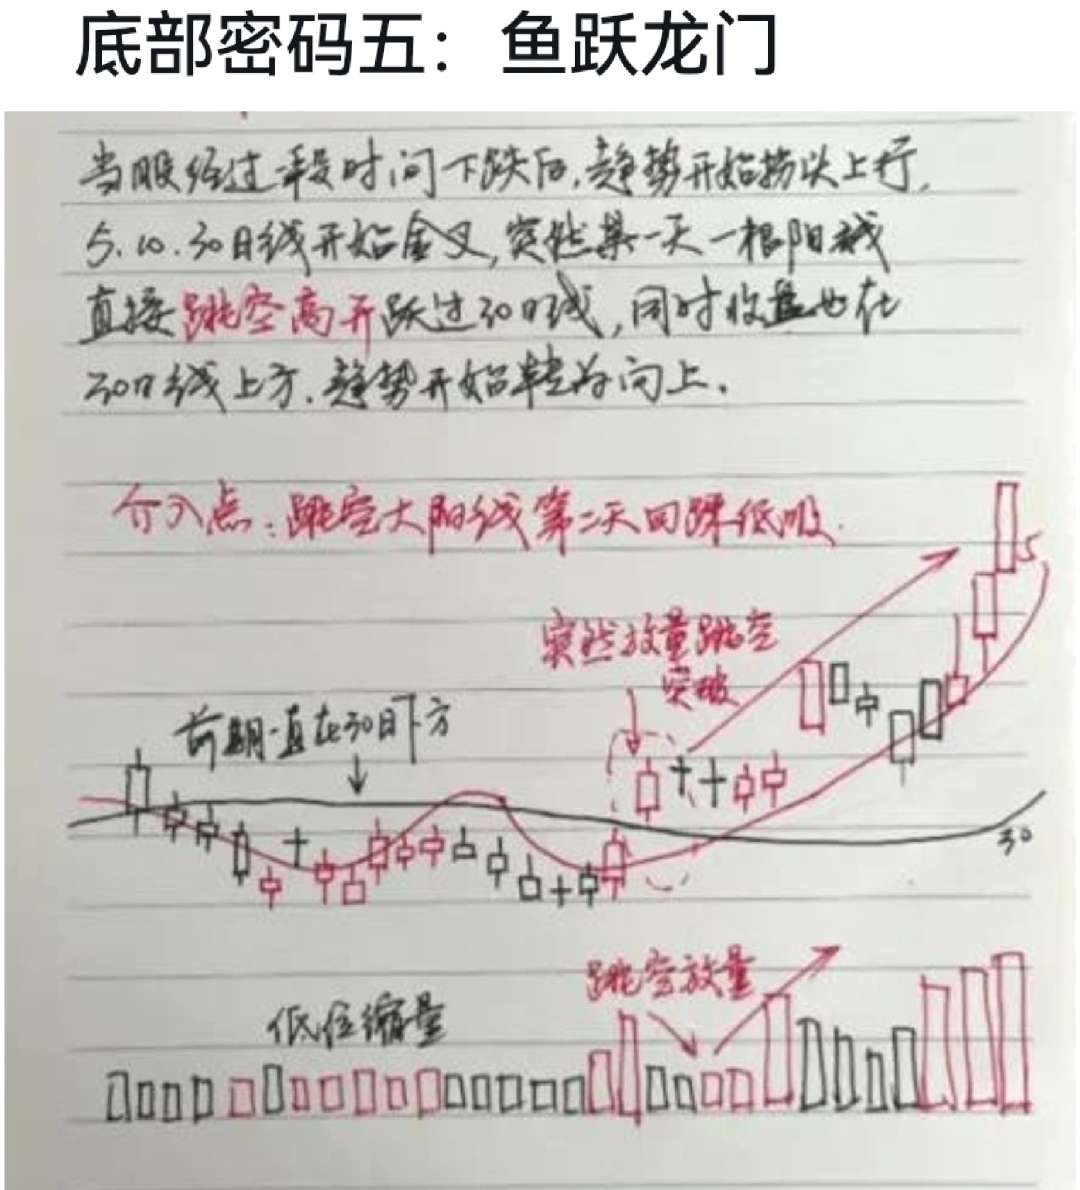 底部密码五：鱼跃龙门
当股经过一段时间下跌后，趋势开始抬头上行，
5.10.30日线开始金叉，突然某一天一根阳线
直接跳空高开跃过30日线，同时收盘也在
30日线上方，趋势开始转为向上。
介入点：跳空大阳线第二天回踩低吸.
突然放量跳空
突破
5
前期一直在30日下方
30
跳空放量
低位缩量